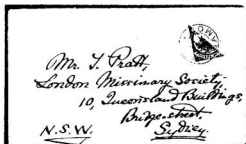 Mr. T. Pratt,
London Missionary Society,
10, Queensland Buildings,
Bridge-street.
N.S.W. Sydney.